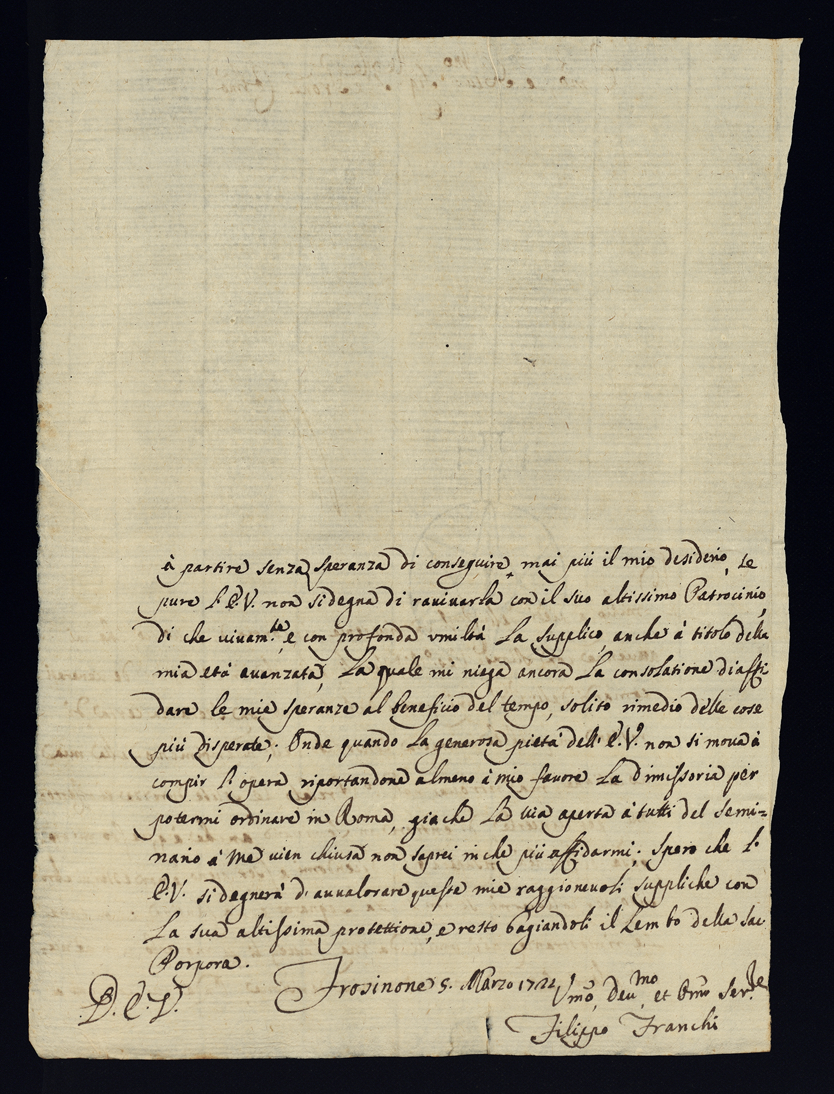 à partire senza speranza di conseguire mai più il mio desiderio, se
pure l'E.V. non si degna di ravivarla con il suo altissimo Patrocinio,
di che vivam.te, e con profonda umiltà La supplico, anche à titolo della
mia età avanzata, La quale mi niega ancora La consolatione di affi
dare le mie speranze al beneficio del tempo, solito rimedio delle cose
più disperate; Onde quando La generosa pietà dell'E.V. non si mova à
compir l'opera riportandone almeno à mio favore La Dimissoria per
potermi ordinare in Roma, giache La via aperta à tutti del Semi=
nario à me vien chiusa non saprei in che più affidarmi; Spero che l'
E.V. si degnerà d'avvalorare queste mie raggionevoli suppliche con
La sua altissima protettione, e resto bagiandoli il Lembo della Sac
Porpora.
Frosinone 5. Marzo 1722
D. E. V.
Umo, Devmo, et Obmo Serre
Filippo Franchi